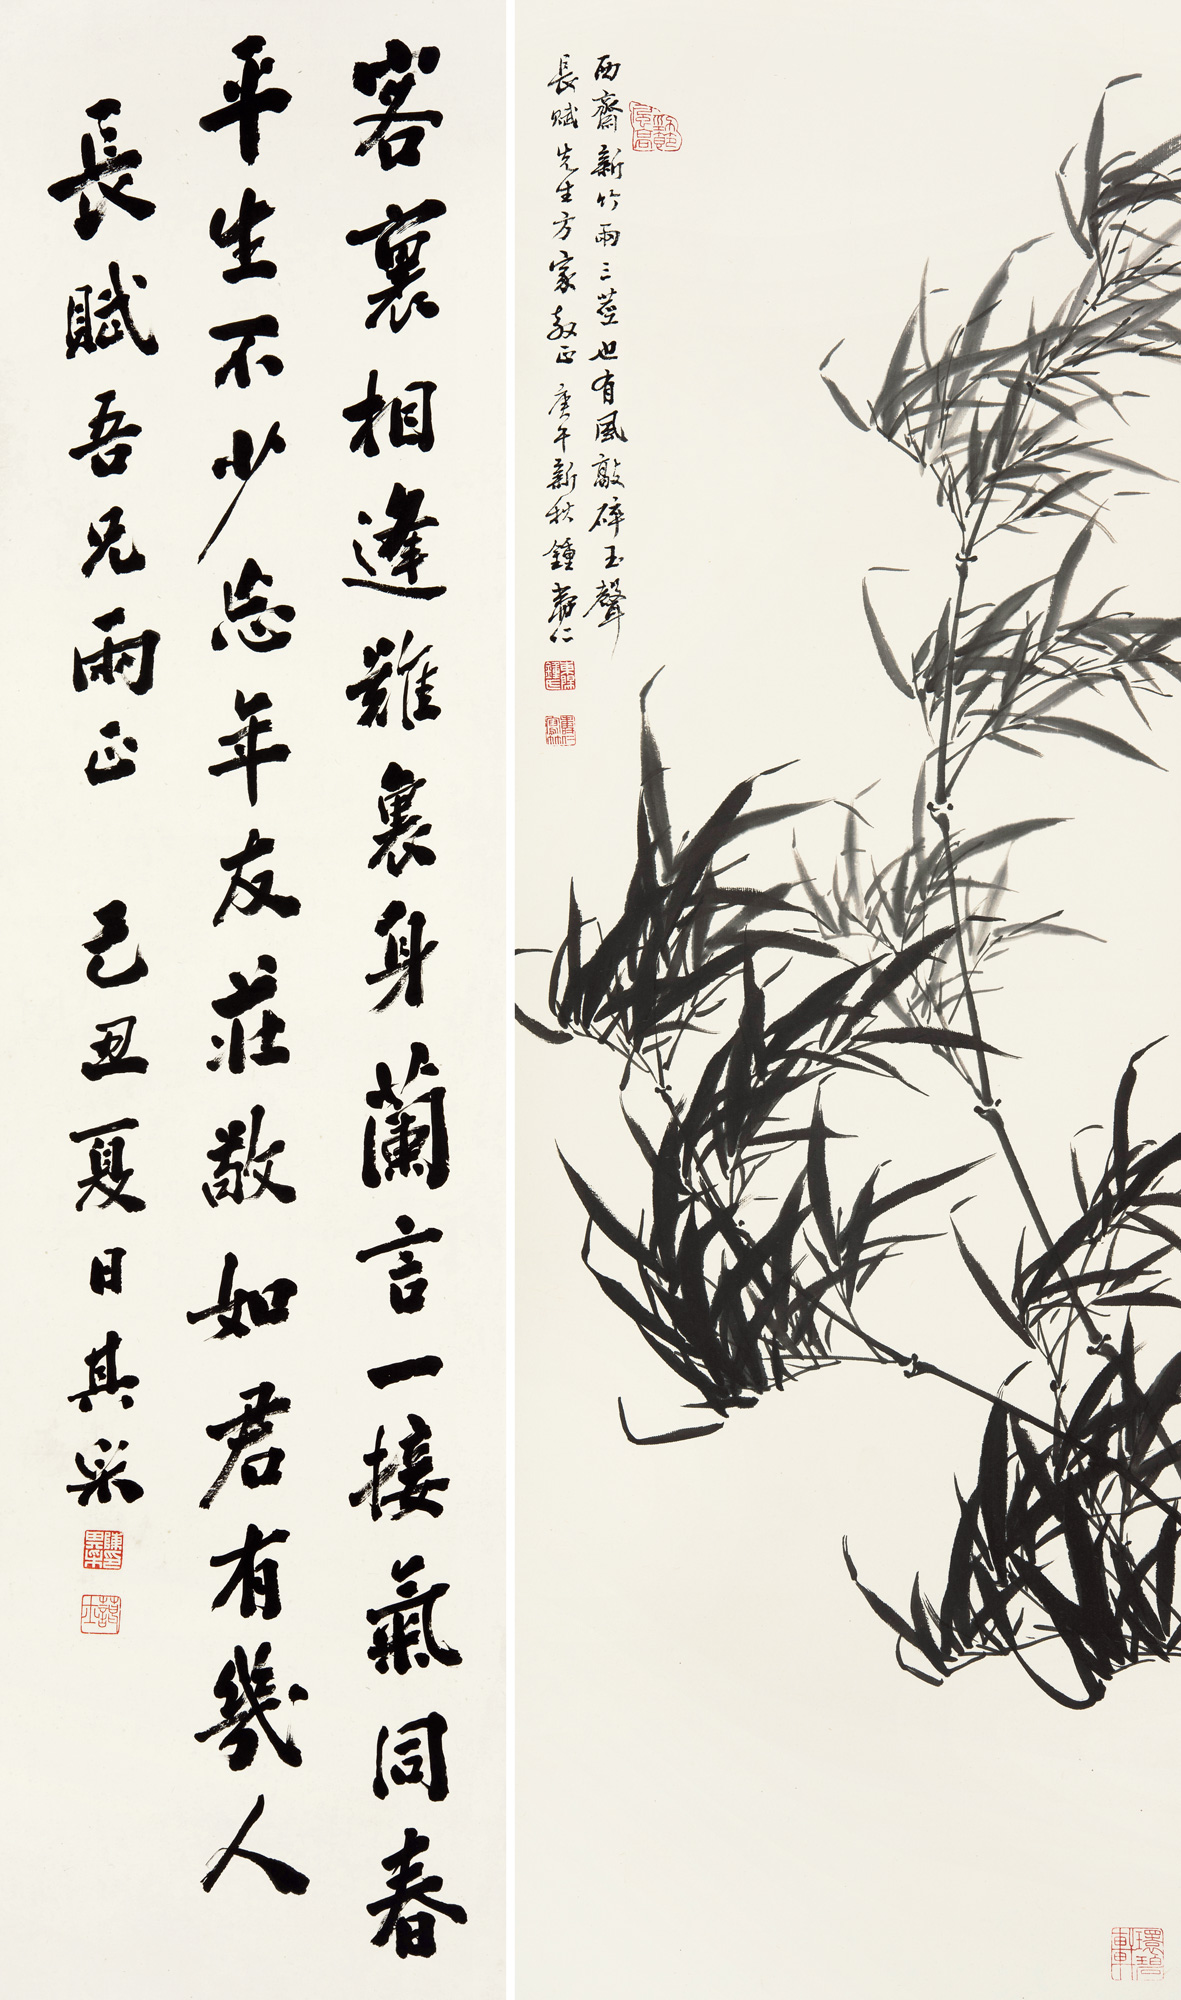 西齋新竹雨三莖也有風敲碎玉聲
長賦先生方家教正庚午新秋鍾壽仁
環碧軒
客裏相逢難裏身蘭言一接氣同春
平生不少忘年友莊敬如君有幾人
長賦吾兄雨正 己丑夏日其采